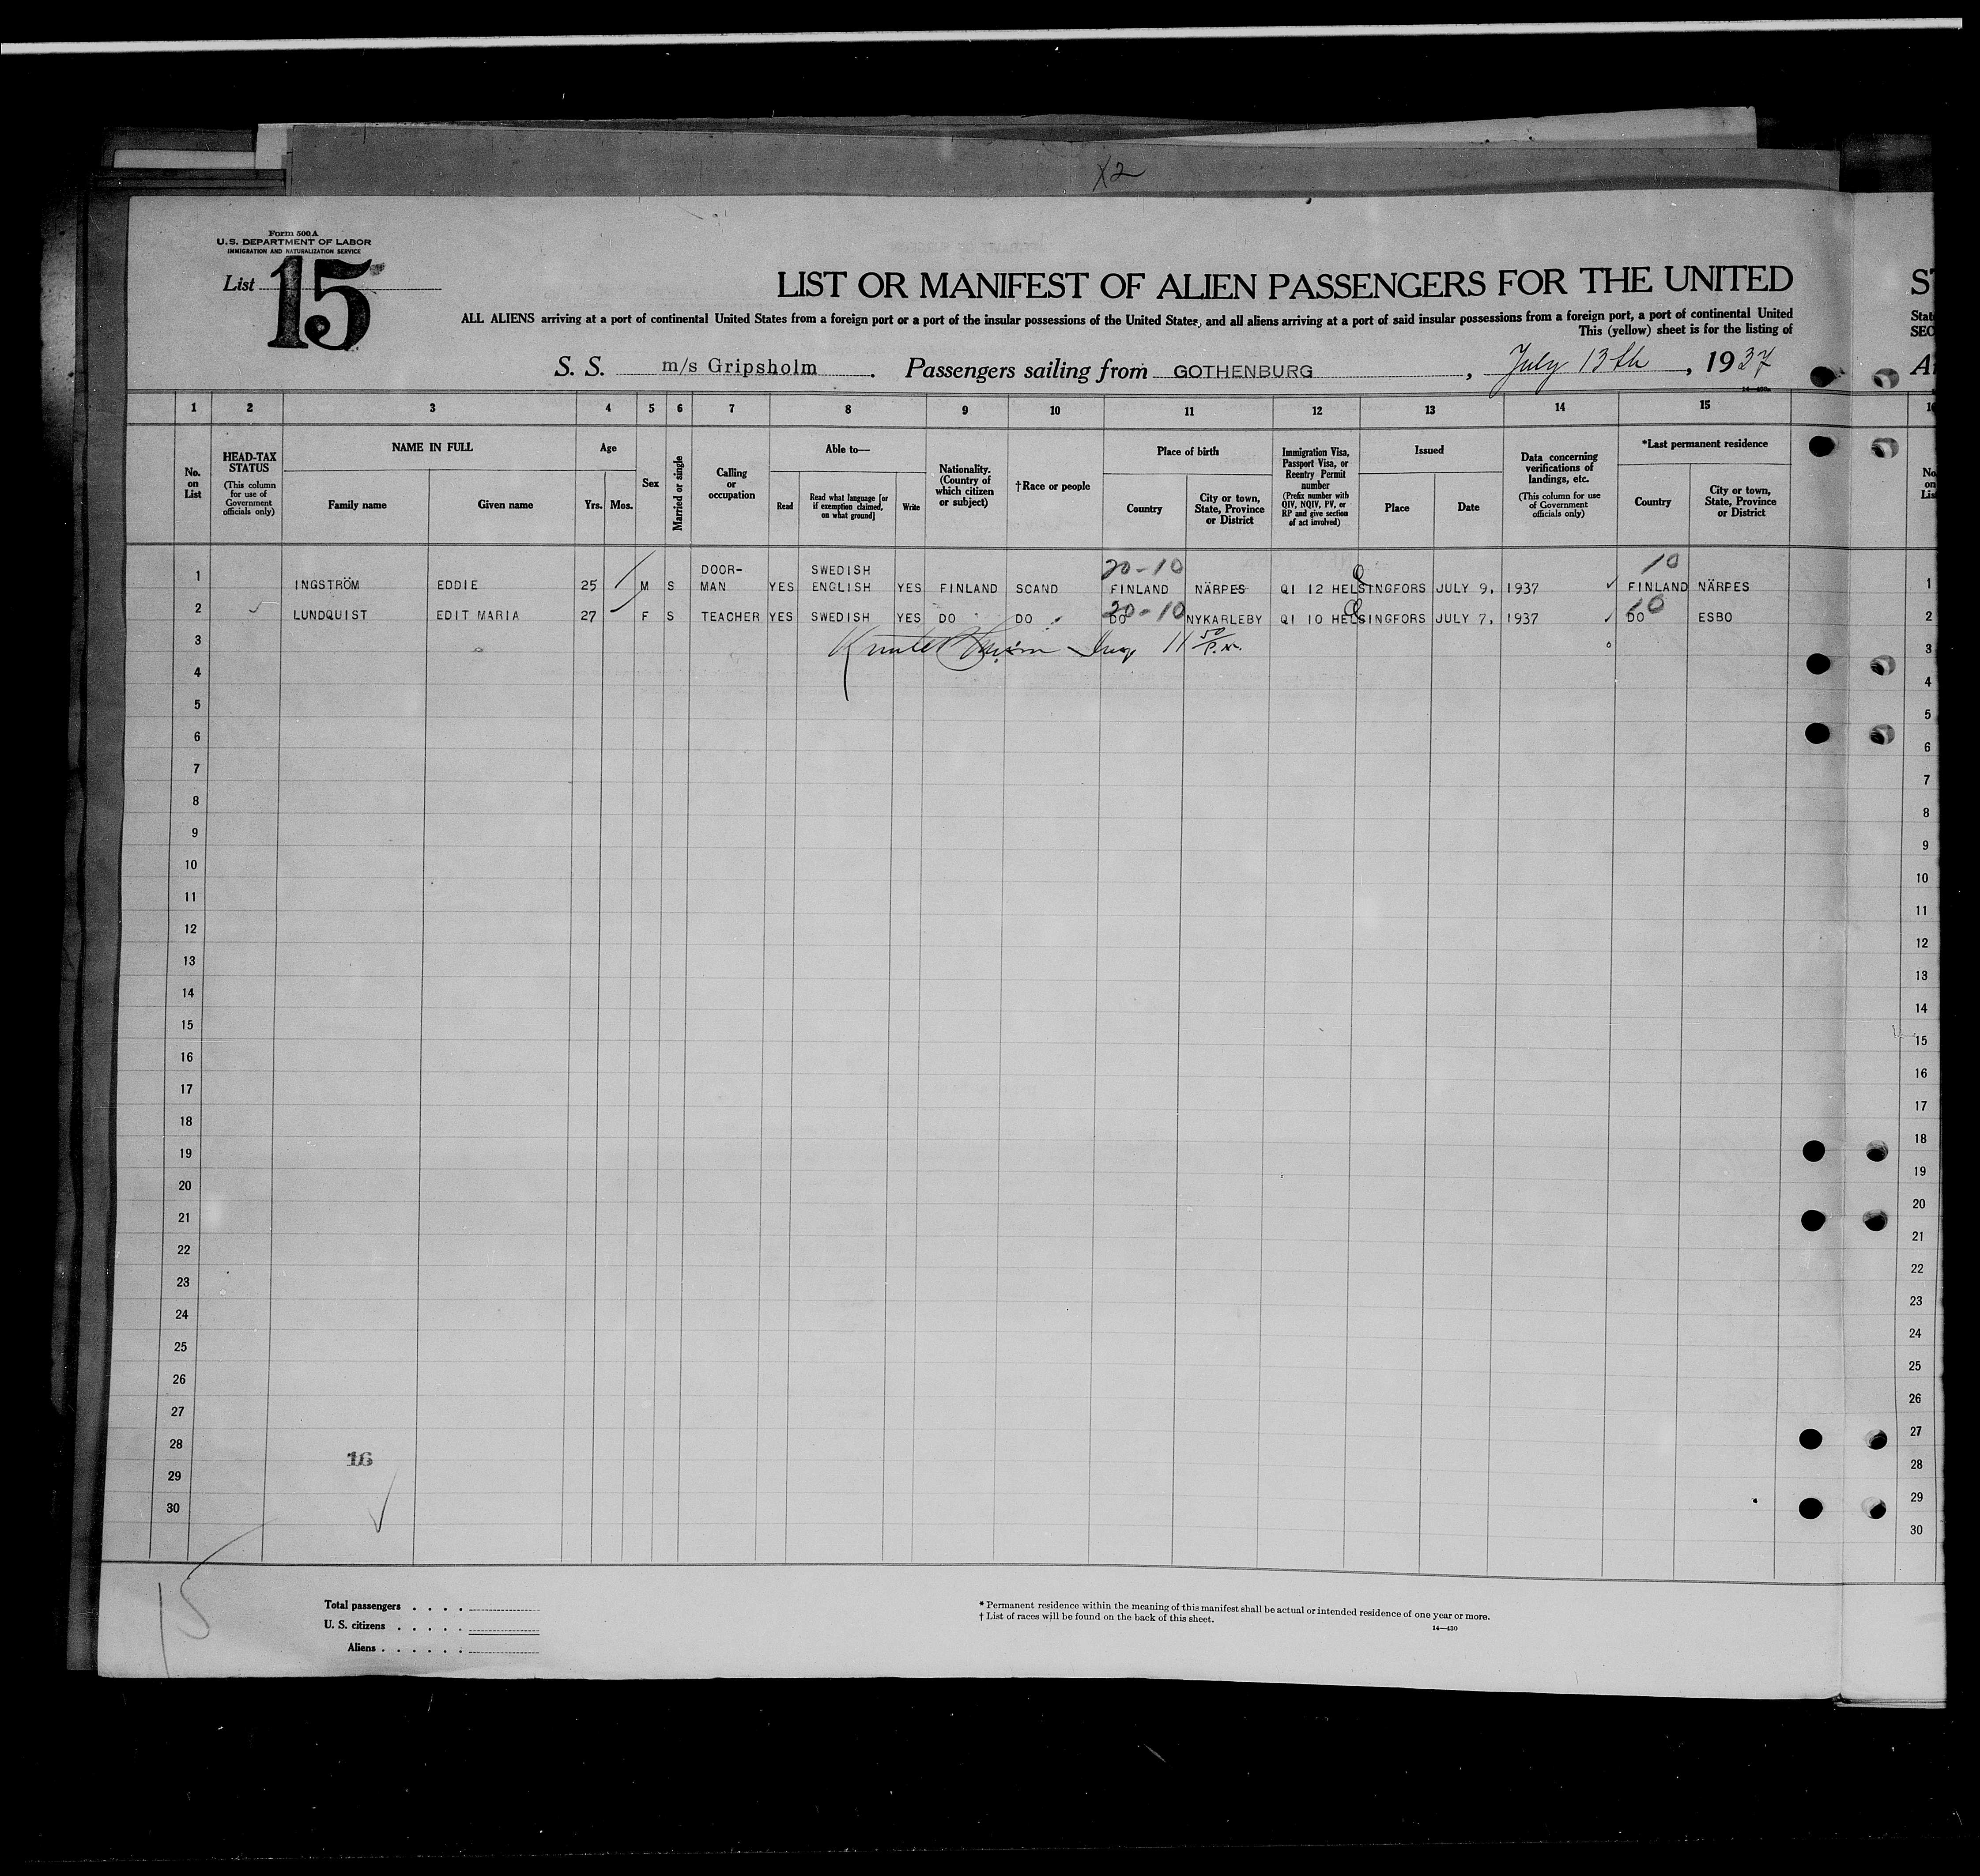 X2
Form 500A
U.S. DEPARTMENT OF LABOR
IMMIGRATION AND NATURALIZATION SERVICE
List 15
LIST OR MANIFEST OF ALIEN PASSENGERS FOR THE UNITED
ALL ALIENS arriving at a port of continental United States from a foreign port or a port of the insular possessions of the United States, and all aliens arriving at a port of said insular possessions from a foreign port, a port of continental United
This (yellow) sheet is for the listing of
S. S. m/s Gripsholm. Passengers sailing from GOTHENBURG, July 13th, 1937
14—430
1 2 3 4 5 6 7 8 9 10 11 12 13 14 15
No. on List
HEAD-TAX STATUS (This column for use of Government officials only)
NAME IN FULL
Family name Given name
Age
Yrs. Mos.
Sex
Married or single
Calling or occupation
Able to—
Read Read what language [or if exemption claimed, on what ground] Write
Nationality. (Country of which citizen or subject)
†Race or people
Place of birth
Country City or town, State, Province or District
Immigration Visa, Passport Visa, or Reentry Permit number (Prefix number with QIV, NQIV, PV, or RP and give section of act involved)
Issued
Place Date
Data concerning verifications of landings, etc. (This column for use of Government officials only)
*Last permanent residence
Country City or town, State, Province or District
No. on List
20-10 10
1 INGSTRÖM EDDIE 25 M S DOOR-MAN YES SWEDISH ENGLISH YES FINLAND SCAND FINLAND NÄRPES QI 12 HELSINGFORS JULY 9, 1937 FINLAND NÄRPES 1
20-10 10
2 LUNDQUIST EDIT MARIA 27 F S TEACHER YES SWEDISH YES DO DO DO NYKARLEBY QI 10 HELSINGFORS JULY 7, 1937 DO ESBO 2
3 11 50 P.M. 3
4 4
5 5
6 6
7 7
8 8
9 9
10 10
11 11
12 12
13 13
14 14
15 15
16 16
17 17
18 18
19 19
20 20
21 21
22 22
23 23
24 24
25 25
26 26
27 27
28 28
16
29 29
30 30
15
Total passengers
U. S. citizens
Aliens
* Permanent residence within the meaning of this manifest shall be actual or intended residence of one year or more.
† List of races will be found on the back of this sheet.
14—430